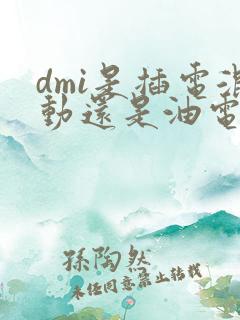 dmi是插電混
動還是油電
孫陶然
未經同意禁止轉載